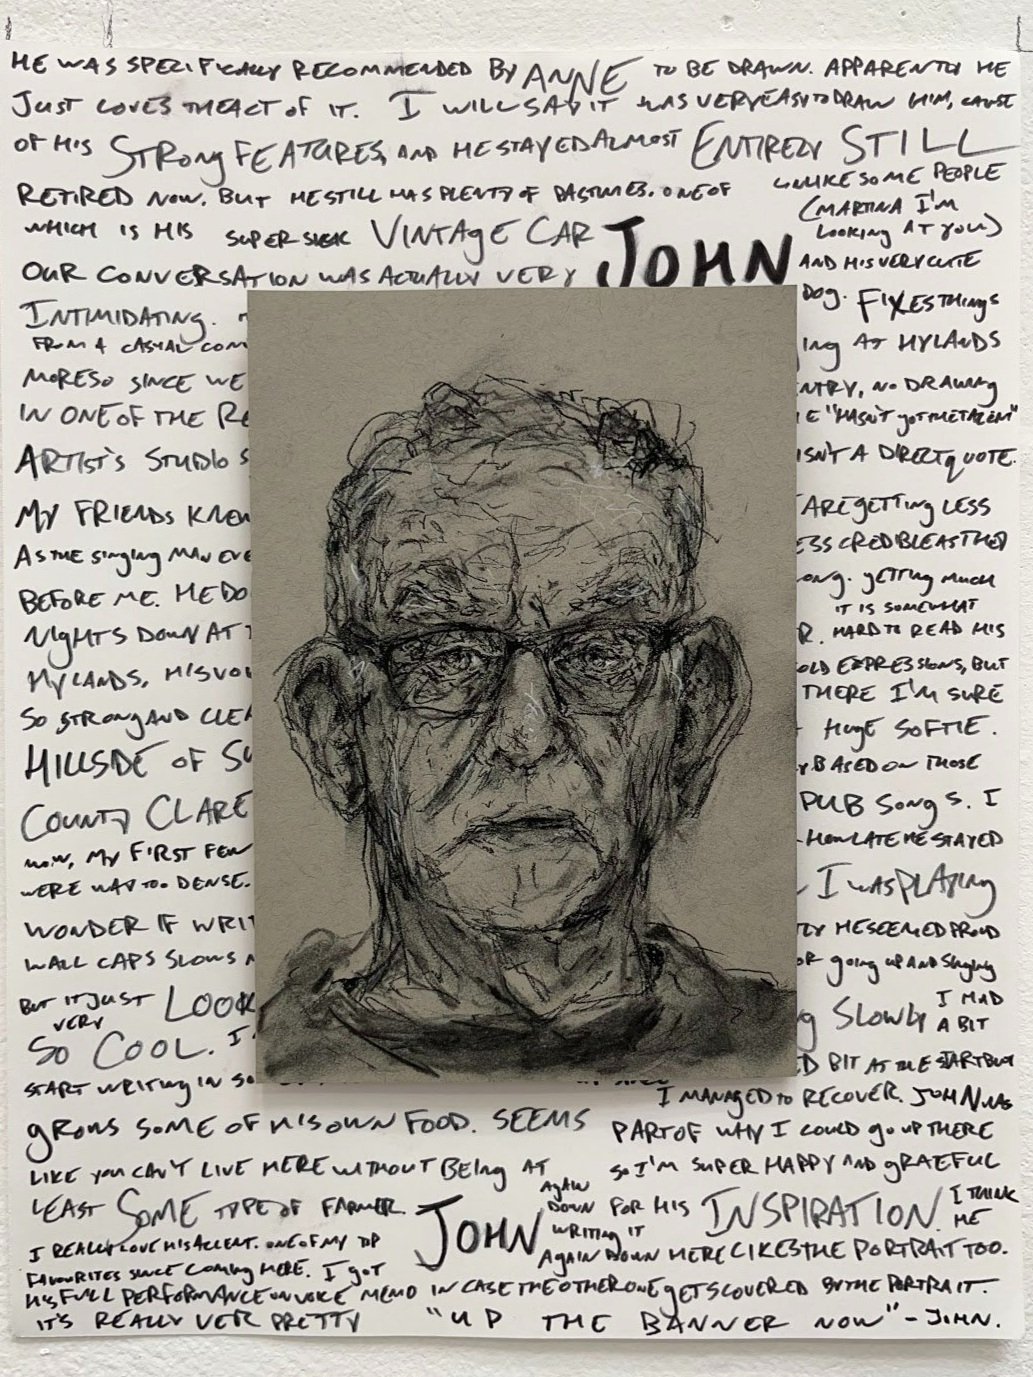 HE WAS SPECIFICALLY RECOMMENDED BY ANNE TO BE DRAWN. APPARENTLY HE
JUST LOVES THE ACT OF IT. I WILL SAY IT WAS VERY EASY TO DRAW HIM, CAUSE
OF HIS STRONG FEATURES, AND HE STAYED ALMOST ENTIRELY STILL
RETIRED NOW. BUT HE STILL HAS PLENTY OF PASTIMES. ONE OF UNLIKE SOME PEOPLE
WHICH IS HIS SUPER SLEEK VINTAGE CAR (MARTINA I'M
LOOKING AT YOU)
OUR CONVERSATION WAS ACTUALLY VERY JOHN AND HIS VERY CUTE
INTIMIDATING. DOG. FIXES THINGS
FROM A CASUAL ING AT HYLANDS
MORESO SINCE WE NTRY, NO DRAWING
IN ONE OF THE "HASN'T GOT THE TALENT"
ARTIST'S STUDIO S ISN'T A DIRECT QUOTE.
MY FRIENDS KNEW ARE GETTING LESS
AS THE SINGING MAN EVE ESS CREDIBLE AS THEY
BEFORE ME. HE DO ONG. GETTING MUCH
IT IS SOMEWHAT
NIGHTS DOWN AT R. HARD TO READ HIS
HYLANDS, HIS VOI OLD EXPRESSIONS, BUT
THERE I'M SURE
SO STRONG AND CLEA HUGE SOFTIE.
HILLSIDE OF SU BASED ON THOSE
COUNTY CLARE PUB SONGS. I
NOW, MY FIRST FEW HOW LATE HE STAYED
WERE WAY TOO DENSE. I WAS PLAYING
WONDER IF WRIT LY HE SEEMED PROUD
WALL CAPS SLOWS OR GOING UP AND SINGING
BUT IT JUST LOOK G SLOWLY I HAD
VERY A BIT
SO COOL. I D BIT AT THE START BUT
START WRITING IN I MANAGED TO RECOVER. JOHN WAS
GROWS SOME OF HIS OWN FOOD. SEEMS PART OF WHY I COULD GO UP THERE
LIKE YOU CAN'T LIVE HERE WITHOUT BEING AT SO I'M SUPER HAPPY AND GRAEFUL
LEAST SOME TYPE OF FARMER. JOHN AGAIN
DOWN FOR HIS INSPIRATION. I THINK
WRITING IT HE
I REALLY LOVE HIS ACCENT. ONE OF MY TOP AGAIN DOWN HERE LIKES THE PORTRAIT TOO.
FAVOURITES SINCE COMING HERE. I GOT
HIS FULL PERFORMANCE ON VOICE MEMO IN CASE THE OTHER ONE GETS COVERED BY THE PORTRAIT.
IT'S REALLY VER PRETTY "UP THE BANNER NOW" - JOHN.